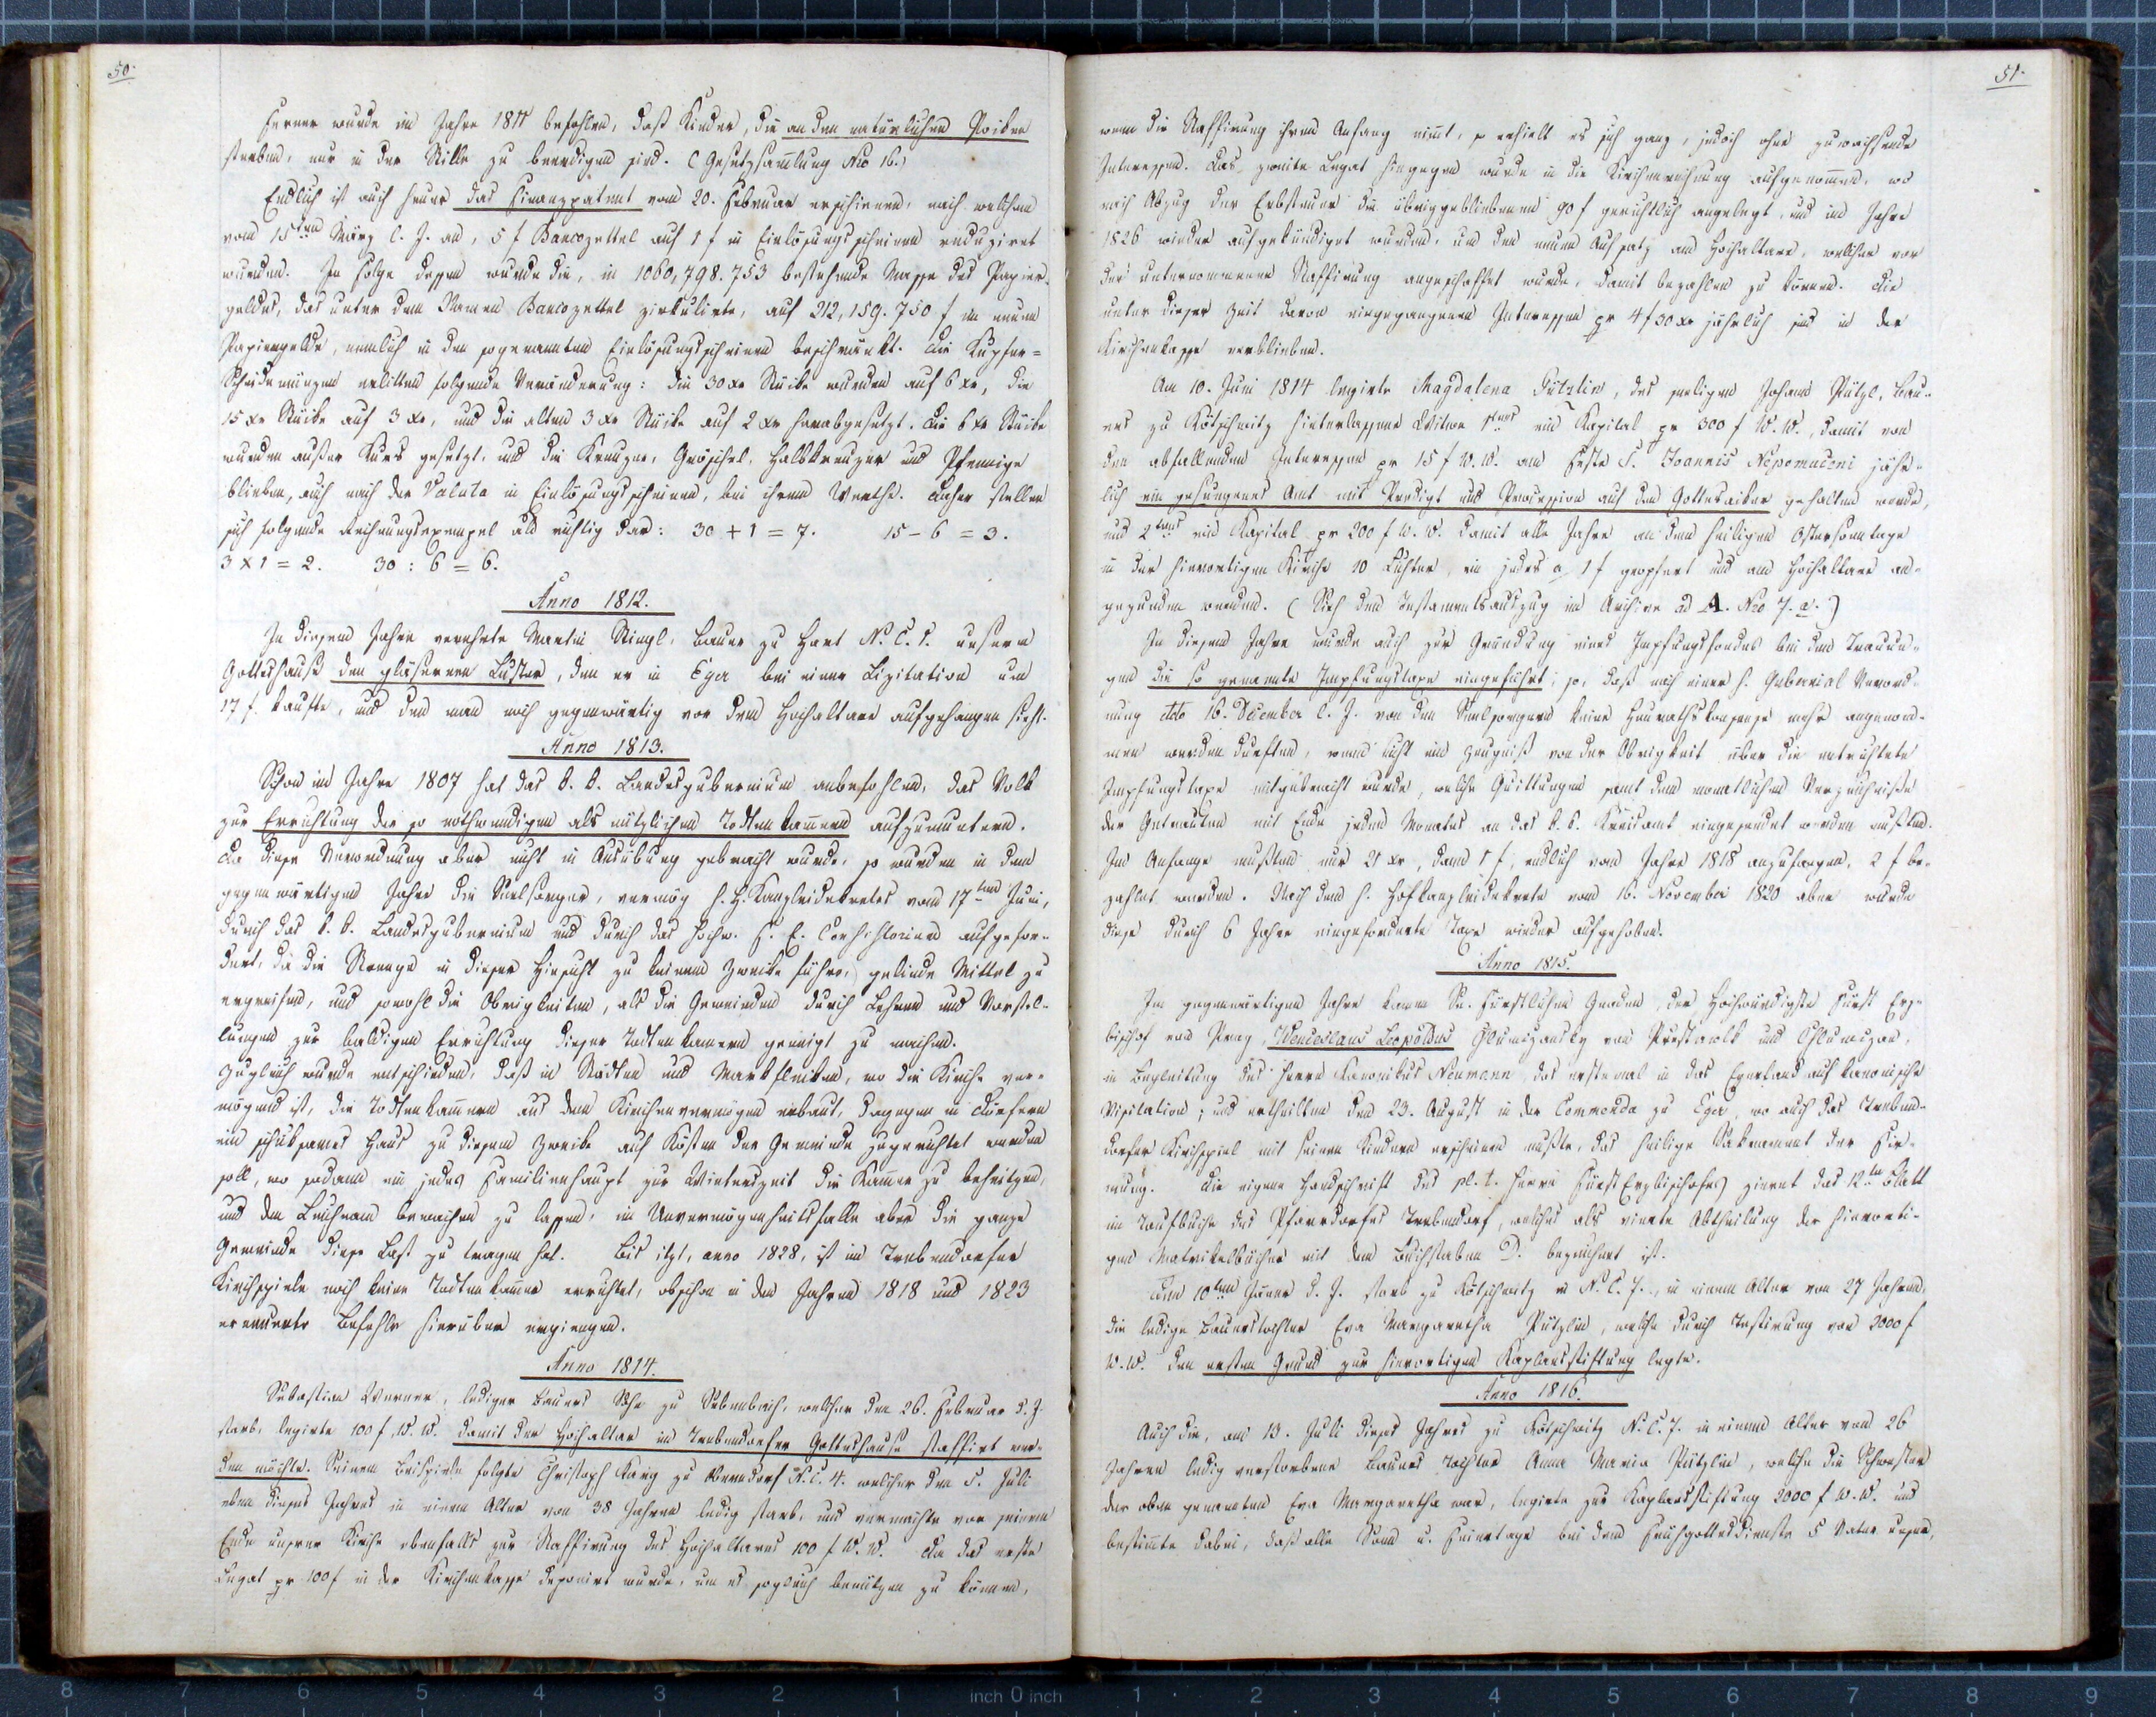 50.
Ferner wurde im Jahre 1811 befohlen, daß Kinder, die an den natürlichen Poken
sterben, nur in der Stille zu beerdigen sind. (Gesetzsam̄lung Nro 16.)
Endlich ist auch heuer das Finanzpatent vom 20. Februar erschienen, nach welchem
vom 15ten März l. J. an, 5 f Bancozettel auf 1 f in Einlösungsscheinen reduziret
wurden. In Folge dessen wurde die, in 1060,798.753 bestehende Masse des Papier-
geldes, das unter dem Namen Bancozettel zirkulirte, auf 212,159.750 f im neuen
Papiergelde, nemlich in den sogenannten Einlösungsscheinen beschränkt. Die Kupfer=
Scheidemünzen erlitten folgende Veränderung: die 30 xr Stücke wurden auf 6 xr, die
15 xr Stücke auf 3 xr, und die alten 3 xr Stücke auf 2 xr herabgesetzt. Die 6 xr Stücke
wurden außer Kurs gesetzt, und die Kreuzer, Gröschel, Halbkreuzer und Pfennige
blieben, auch nach der Valuta in Einlösungsscheinen, bei ihrem Werthe. Daher stellen
sich folgende Rechnungsexempel als richtig dar: 30 + 1 = 7. 15 – 6 = 3.
3 x 1 = 2. 30 : 6 = 6.
Anno 1812.
In diesem Jahre verehrte Martin Stingl, Bauer zu Hart N. C. 1. unserm
Gotteshause den gläsernen Luster, den er in Eger bei einer Lizitation um
17 f. kaufte, und den man noch gegenwärtig vor dem Hochaltare aufgehangen sieht.
Anno 1813.
Schon im Jahre 1807 hat das k. k. Landesgubernium anbefohlen, das Volk
zur Errichtung der so nothwendigen als nützlichen Todtenkam̄ern aufzumuntern.
Da diese Verordnung aber nicht in Ausübung gebracht wurde, so wurden in dem
gegenwärtigen Jahre die Seelsorger, vermög h. H. Kanzleidekretes vom 17ten Juni,
durch das k. k. Landesgubernium und durch das hochw. F. E. Consistorium aufgefor-
dert, da die Strenge in dieser Hinsicht zu keinem Zwecke führe, gelinde Mittel zu
ergreifen, und sowohl die Obrigkeiten, als die Gemeinden durch Lehren und Vorstel-
lungen zur baldigen Errichtung dieser Todtenkamern geneigt zu machen.
Zugleich wurde entschieden, daß in Städten und Marktflecken, wo die Kirche ver-
mögend ist, die Todtenkam̄ern aus dem Kirchenvermögen erbaut, dagegen in Dörfern
ein schicksames Haus zu diesem Zwecke auf Kosten der Gemeinde zugerichtet werden
soll, wo sodann ein jedes Familienhaupt zur Winterszeit die Kam̄er zu beheitzen,
und den Leichnam bewachen zu lassen, im Unvermögenheitsfalle aber die ganze
Gemeinde diese Last zu tragen hat. Bis itzt, anno 1828, ist im Trebendorfer
Kirchspiele noch keine Todtenkam̄er errichtet, obschon in den Jahren 1818 und 1823
erneuerte Befehle hierüber ergiengen.
Anno 1814.
Sebastian Werner, lediger Bauers Sohn zu Sebenbach, welcher den 26. Februar d. J.
starb, legirte 100 f W. W. damit der Hochaltar im Trebendorfer Gotteshause staffirt wer-
den möchte. Seinem Beispiele folgte Christoph Karg zu N. C. 4. welcher den 5. Juli
eben dieses Jahres in einem Alter von 38 Jahren ledig starb, und vermachte vor seinem
Ende unserer Kirche ebenfalls zur Staffirung des Hochaltares 100 f W. W. Da das erste
Legat pr 100 f in der Kirchenkasse deponirt wurde, um es sogleich benützen zu können,
51.
wenn die Staffirung ihren Anfang nim̄t, so erhielt es sich ganz, jedoch ohne zuwachsende
Interessen. Das zweite Legat hingegen wurde in die Kirchenrechnung aufgenom̄en, wo
nach Abzug der Erbsteuer die übriggebliebenen 90 f gerichtlich angelegt, und im Jahre
1826 wieder aufgekündiget wurden, um den neuen Aufsatz am Hochaltare, welcher vor
der unternommenen Staffirung angeschaffet wurde, damit bezahlen zu können. Die
unter dieser Zeit davon eingegangenen Interessen pr 4 f 30 xr jährlich sind in der
Kirchenkasse verblieben.
Am 10. Juni 1814 legirte Magdalena Pützlin, des seeligen Johann Pützl, Bau-
ers zu Kötschwitz hinterlassene Witwe 1stens ein Kapital pr 300 f W. W., damit von
den abfallenden Interessen pr 15 f W. W. am Feste S. Joannis Nepomuceni jähr-
lich ein gesungenes Amt mit Predigt und Procession auf den Gottesacker gehalten werde,
und 2tens ein Kapital pr 200 f W. W. damit alle Jahre an dem heiligen Ostersonntage
in der hierortigen Kirche 10 Lichter, ein jedes a 1 f geopfert und am Hochaltare an-
gezunden werden. (Sieh den Testamentsauszug im Archive ad A. Nro 7. a.)
In diesem Jahre wurde auch zur Gründung eines Impfungsfondes bei den Trauun-
gen die so genannte Impfungstaxe eingeführt; so, daß nach einer h. Gubernial Verord-
nung ddo 16. December l. J. von den Seelsorgern keine Heurathskonsense mehr angenom-
men werden durften, wenn nicht ein Zeugniß von der Obrigkeit über die entrichtete
Impfungstaxe mitgebracht wurde, welche Quittungen samt dem monatlichen Verzeichniße
der Getrauten mit Ende jeden Monates an das k. k. Kreisamt eingesendet werden mußten.
Im Anfange mußten nur 21 xr, dann 1 f, endlich vom Jahre 1818 anzufangen, 2 f be-
zahlet werden. Nach dem h. Hofkanzleidekrete vom 16. November 1820 aber wurde
diese durch 6 Jahre eingeforderte Taxe wieder aufgehoben.
Anno 1815.
Im gegenwärtigen Jahre kamen Se. Fürstlichen Gnaden, der Hochwürdigste Fürst Erz-
bischof von Prag, Wenceslaus Leopoldus Chlumczansky von Prestawlk und Chlumczan,
in Begleitung des Herrn Kanonikus Neumann das erstemal in das Egerland auf kanonische
Visitation; und ertheilten den 23. August in der Commenda zu Eger, wo auch das Treben-
dorfer Kirchspiel mit seinen Kindern erscheinen mußte, das heilige Sakrament der Fir-
mung. Die eigene Handschrift des pl. t. Herrn Fürst Erzbischofes zieret das 12te Blatt
im Taufbuche des Pfarrdorfes Trebendorf, welches als vierte Abtheilung der hierorti-
gen Matrikelbücher mit dem Buchstaben D. bezeichnet ist.
Den 10ten Jäner d. J. starb zu Kötschwitz in N. C. 7., in einem Alter von 27 Jahren,
die ledige Bauerstochter Eva Margaretha Pützlin, welche durch Testirung von 2000 f
W. W. den ersten Grund zur hierortigen Kaplansstiftung legte.
Anno 1816.
Auch die, am 13. Juli dieses Jahres zu Kötschwitz N. C. 7. in einem Alter von 26
Jahren ledig verstorbene Bauers Tochter Anna Maria Pützlin, welche die Schwester
der oben genannten Eva Margaretha war, legirte zur Kaplansstiftung 2000 f W. W. und
bestim̄te dabei, daß alle Sonn u. Feiertage bei dem Frühgottesdienste 5 Vater unser,